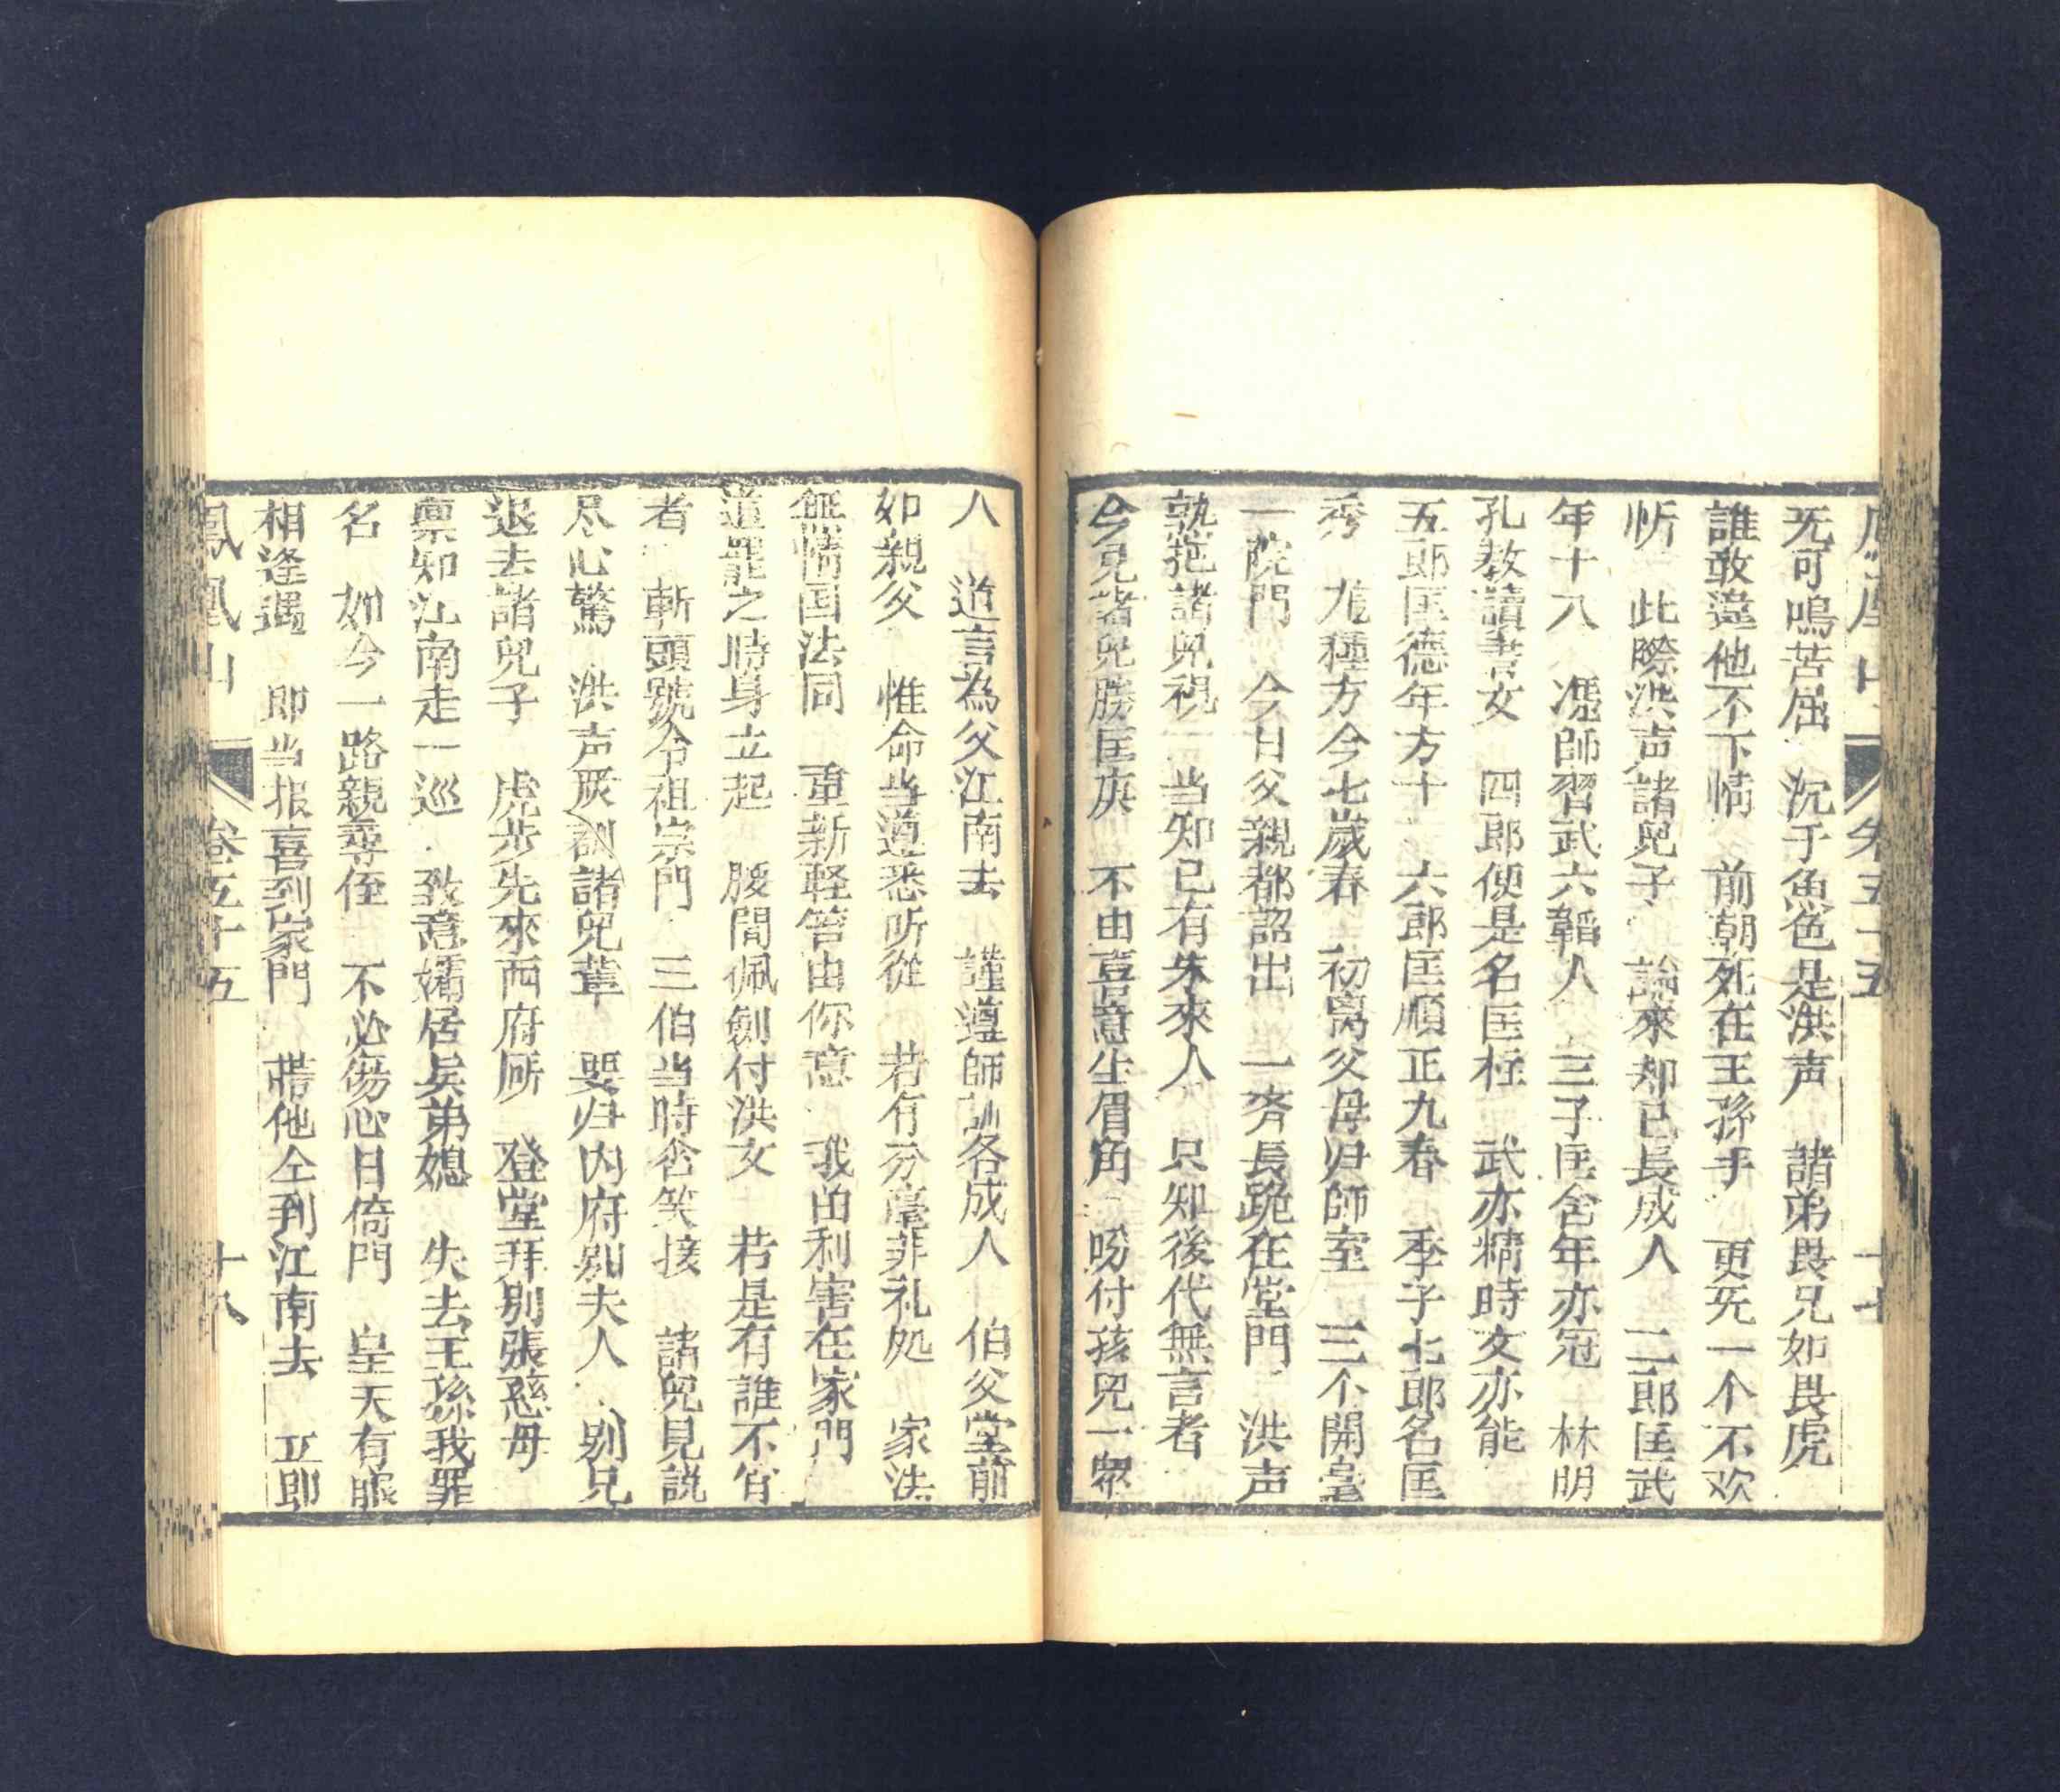 卷五十五 十七
旡可鳴苦屈 沉于魚色是洪声 諸弟畏兄如畏虎
誰敢違他不下情 前朝死在王孫手 更旡一个不欢
忻 此際洪声諸兒子 論來却已長成人 二郎匡武
年十八 馮師習武六韜人 三子匡舍年亦冠 林明
孔教讀書文 四郎便是名匡柱 武亦精時文亦能
五郎匡德年方十 六郎匡順正九春 季子七郎名匡
秀 九種方今七歲春 初离父母归師室 三不開毫
一院門 今日父親都詔出 一齐長跪在堂門 洪声
孰把諸兒視 当知已有朱來人 只知後代無言者
今見諸兒勝匡庚 不由喜意生眉角 吩付孩兒一衆
人 道言為父江南去 謹遵師訓各成人 伯父堂前
如親父 惟命当遵悉听從 若有分毫非礼処 家法
無情国法同 重新輕答由你意 我的利害在家門
道罷之時身立起 腰間佩劍付洪文 若是有誰不肖
者 斬頭號令祖宗門 三伯当時含笑接 諸兒見説
尽心驚 洪声戻訓諸兒輩 要归内府别夫人 别兄
退去諸兒子 虎步先來西府所 登堂拜别張慈母
禀知江南走一巡 致意孀居吴弟媳 失去王孫我罪
名 如今一路親尋侄 不必傷心日倚門 皇天有眼
相逢遇 即当报喜到家門 蒂他仝到江南去 立即
鳳凰山 卷五十五 十八